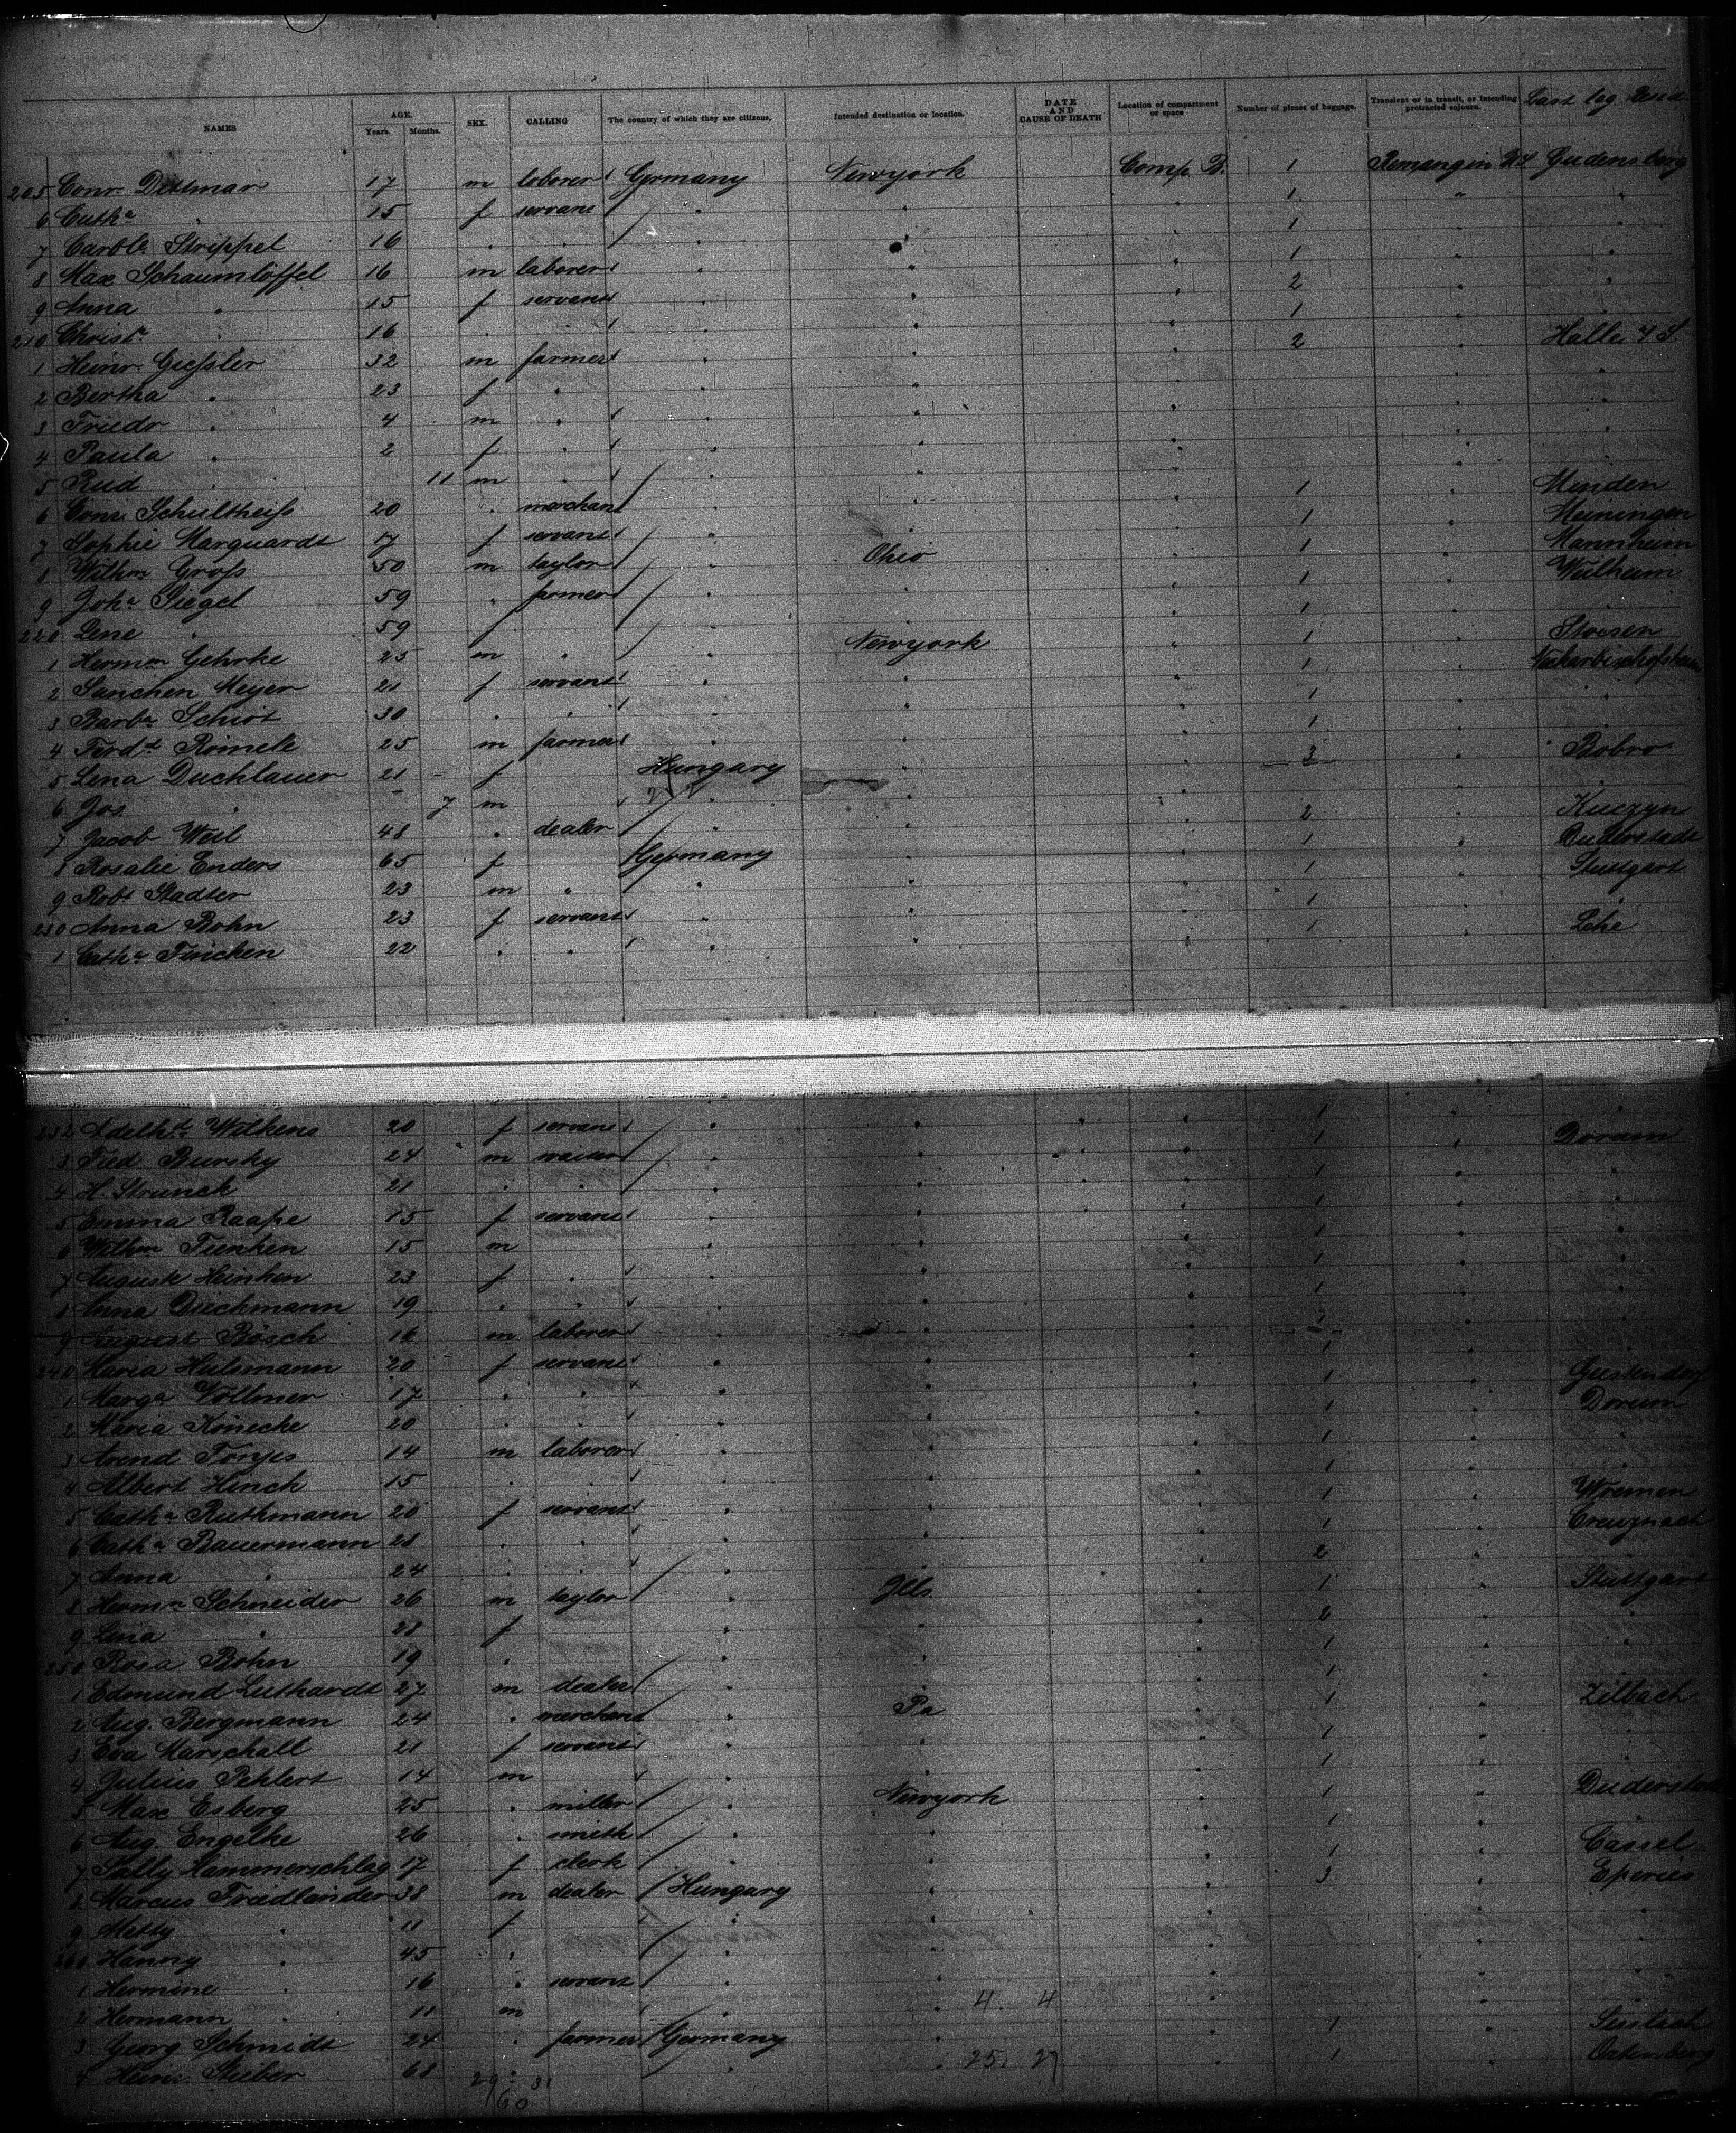 NAMES AGE. Years. Months. SEX. CALLING The country of which they are citizens, Intended destination or location. DATE AND CAUSE OF DEATH Location of compartment or space Number of pieces of baggage. Transient or in transit, or intending protracted sojourn. Last leg. Resid.
205 Conr. Dettmar 17 m laborer Germany Newyork Comp. B. 1 Gudensberg
6 Cath.a " 15 f servant " " " 1 " "
7 Carol.e Strippel 16 " " " " " 1 " "
8 Max Schaumlöffel 16 m laborer " " " 1 " "
9 Anna " 15 f servant " " " 2 " "
210 Christ.e " 16 " " " " " 1 " "
1 Heinr. Giessler 32 m farmer " " " 2 " Halle a/S.
2 Bertha " 23 f " " " " " "
3 Friedr " 4 m " " " " " "
4 Paula " 2 f " " " " " "
5 Rud " 11 m " " " " " "
6 Conr. Schultheiss 20 " merchant " " " 1 " Minden
7 Sophie Marquardt 17 f servant " " " 1 " Meiningen
8 Wilhm Gross 50 m taylor " Ohio " 1 " Mannheim
9 Joh.a Siegel 59 " farmer " " " 1 "
220 Lene " 59 f " " " 1 "
1 Hermn Gehrke 25 m " " Newyork " 1 "
2 Sanchen Meyer 21 f servant " " " 1 " Neckarbischofsheim
3 Barb.a 30 " " " " " 1 " "
4 Ferd.d Römele 25 m farmer " " " 1 "
5 Lena Duchlauer 21 f Hungary " " 3 " Bobro
6 Jos. " 7 m " " " "
7 Jacob Weil 48 " dealer " " " 2 "
8 Rosalie Enders 65 f Germany " " 1 " Duderstadt
9 Robt Stadter 23 m " " " " 1 " Stuttgart
230 Anna Bohn 23 f servant " " " 1 "
1 Cath.a Fincken 22 " " " " " 1 " Lehe
232 Adelh.d Wilkens 20 f servant " " " 1 "
3 Fred. Bursky 24 m waiter " " " 1 " Dorum
4 H. Strunck 21 " " " " " 1 " "
5 Emma Raape 15 f servant " " " 1 " "
6 Wilhm Tienken 15 m " " " 1 " "
7 Auguste Heinken 23 f " " " " 1 " "
8 Anna Dieckmann 19 " " " " " 1 " "
9 August Bösch 16 m laborer " " " 1 " "
240 Maria Hulsmann 20 f servant " " " 1 "
1 Marg.a Vollmer 17 " " " " " 1 " Geestendorf
2 Maria Könecke 20 " " " " " 1 " Dorum
3 Arend Tönjes 14 m laborer " " " 1 " "
4 Albert Hinck 15 " " " " " 1 "
5 Cath.a Ruthmann 20 f servant " " " 1 " Wremen
6 Cath.a Bauermann 28 " " " " " 1 " Creuznach
7 Anna " 24 " " " " " 2 " "
8 Hermn Schneider 26 m taylor " Ills. " 1 " Stuttgart
9 Lena " 28 f " " " 2 " "
250 Rosa Bohn 19 " " " " 1 " "
1 Edmund Luthardt 27 m dealer " " " 1 "
2 Aug. Bergmann 24 " merchant " Pa " 1 " Zillbach
3 Eva Marschall 21 f servant " " " 1 " "
4 Julius Pehlert 14 m " " " 1 "
5 Max Esberg 25 " miller " Newyork " 1 " Duderstadt
6 Aug. Engelke 26 " smith " " " 1 " "
7 Sally Hammerschlag 17 f clerk " " " 1 " Cassel
8 Marcus Friedländer 38 m dealer Hungary " " 3 " Eperies
9 Metty " 11 f " " " " "
260 Hanny " 45 " " " " " "
1 Hermine " 16 " servant " " " " "
2 Hermann " 11 m " " 4. 4 " " "
3 Georg Schmidt 24 " farmer Germany " " 1 "
4 Heinr. Stieber 68 " " 25) 27 " 1 "
29 = 31
60